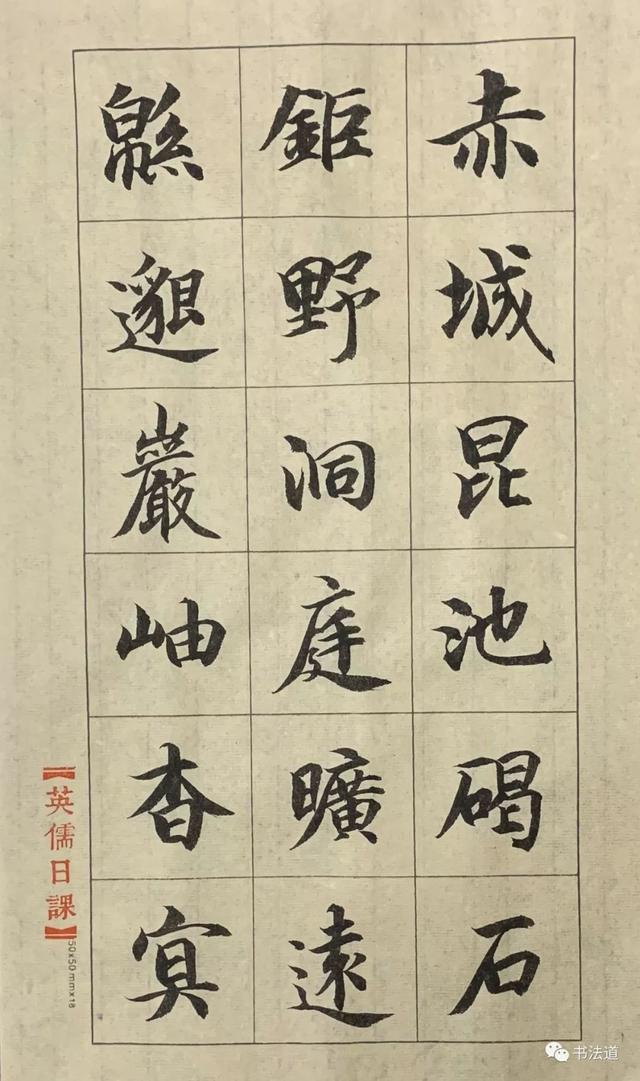 赤城昆池碣石
鉅野洞庭曠遠
緜邈巖岫杳冥
【英儒日課】
50x50mmx18
书法道